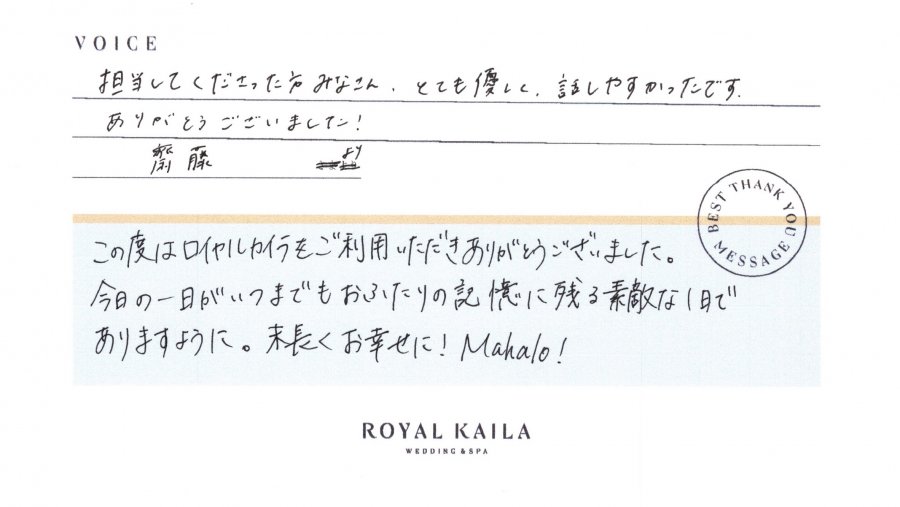 VOICE
担当してくださった方みなさん、とても優しく、話しやすかったです。
ありがとうございました!
齋藤 より
BEST THANK YOU MESSAGE
この度はロイヤルカイラをご利用いただきありがとうございました。
今日の一日がいつまでもおふたりの記憶に残る素敵な1日で
ありますように。末長くお幸せに! Mahalo!
ROYAL KAILA
WEDDING & SPA